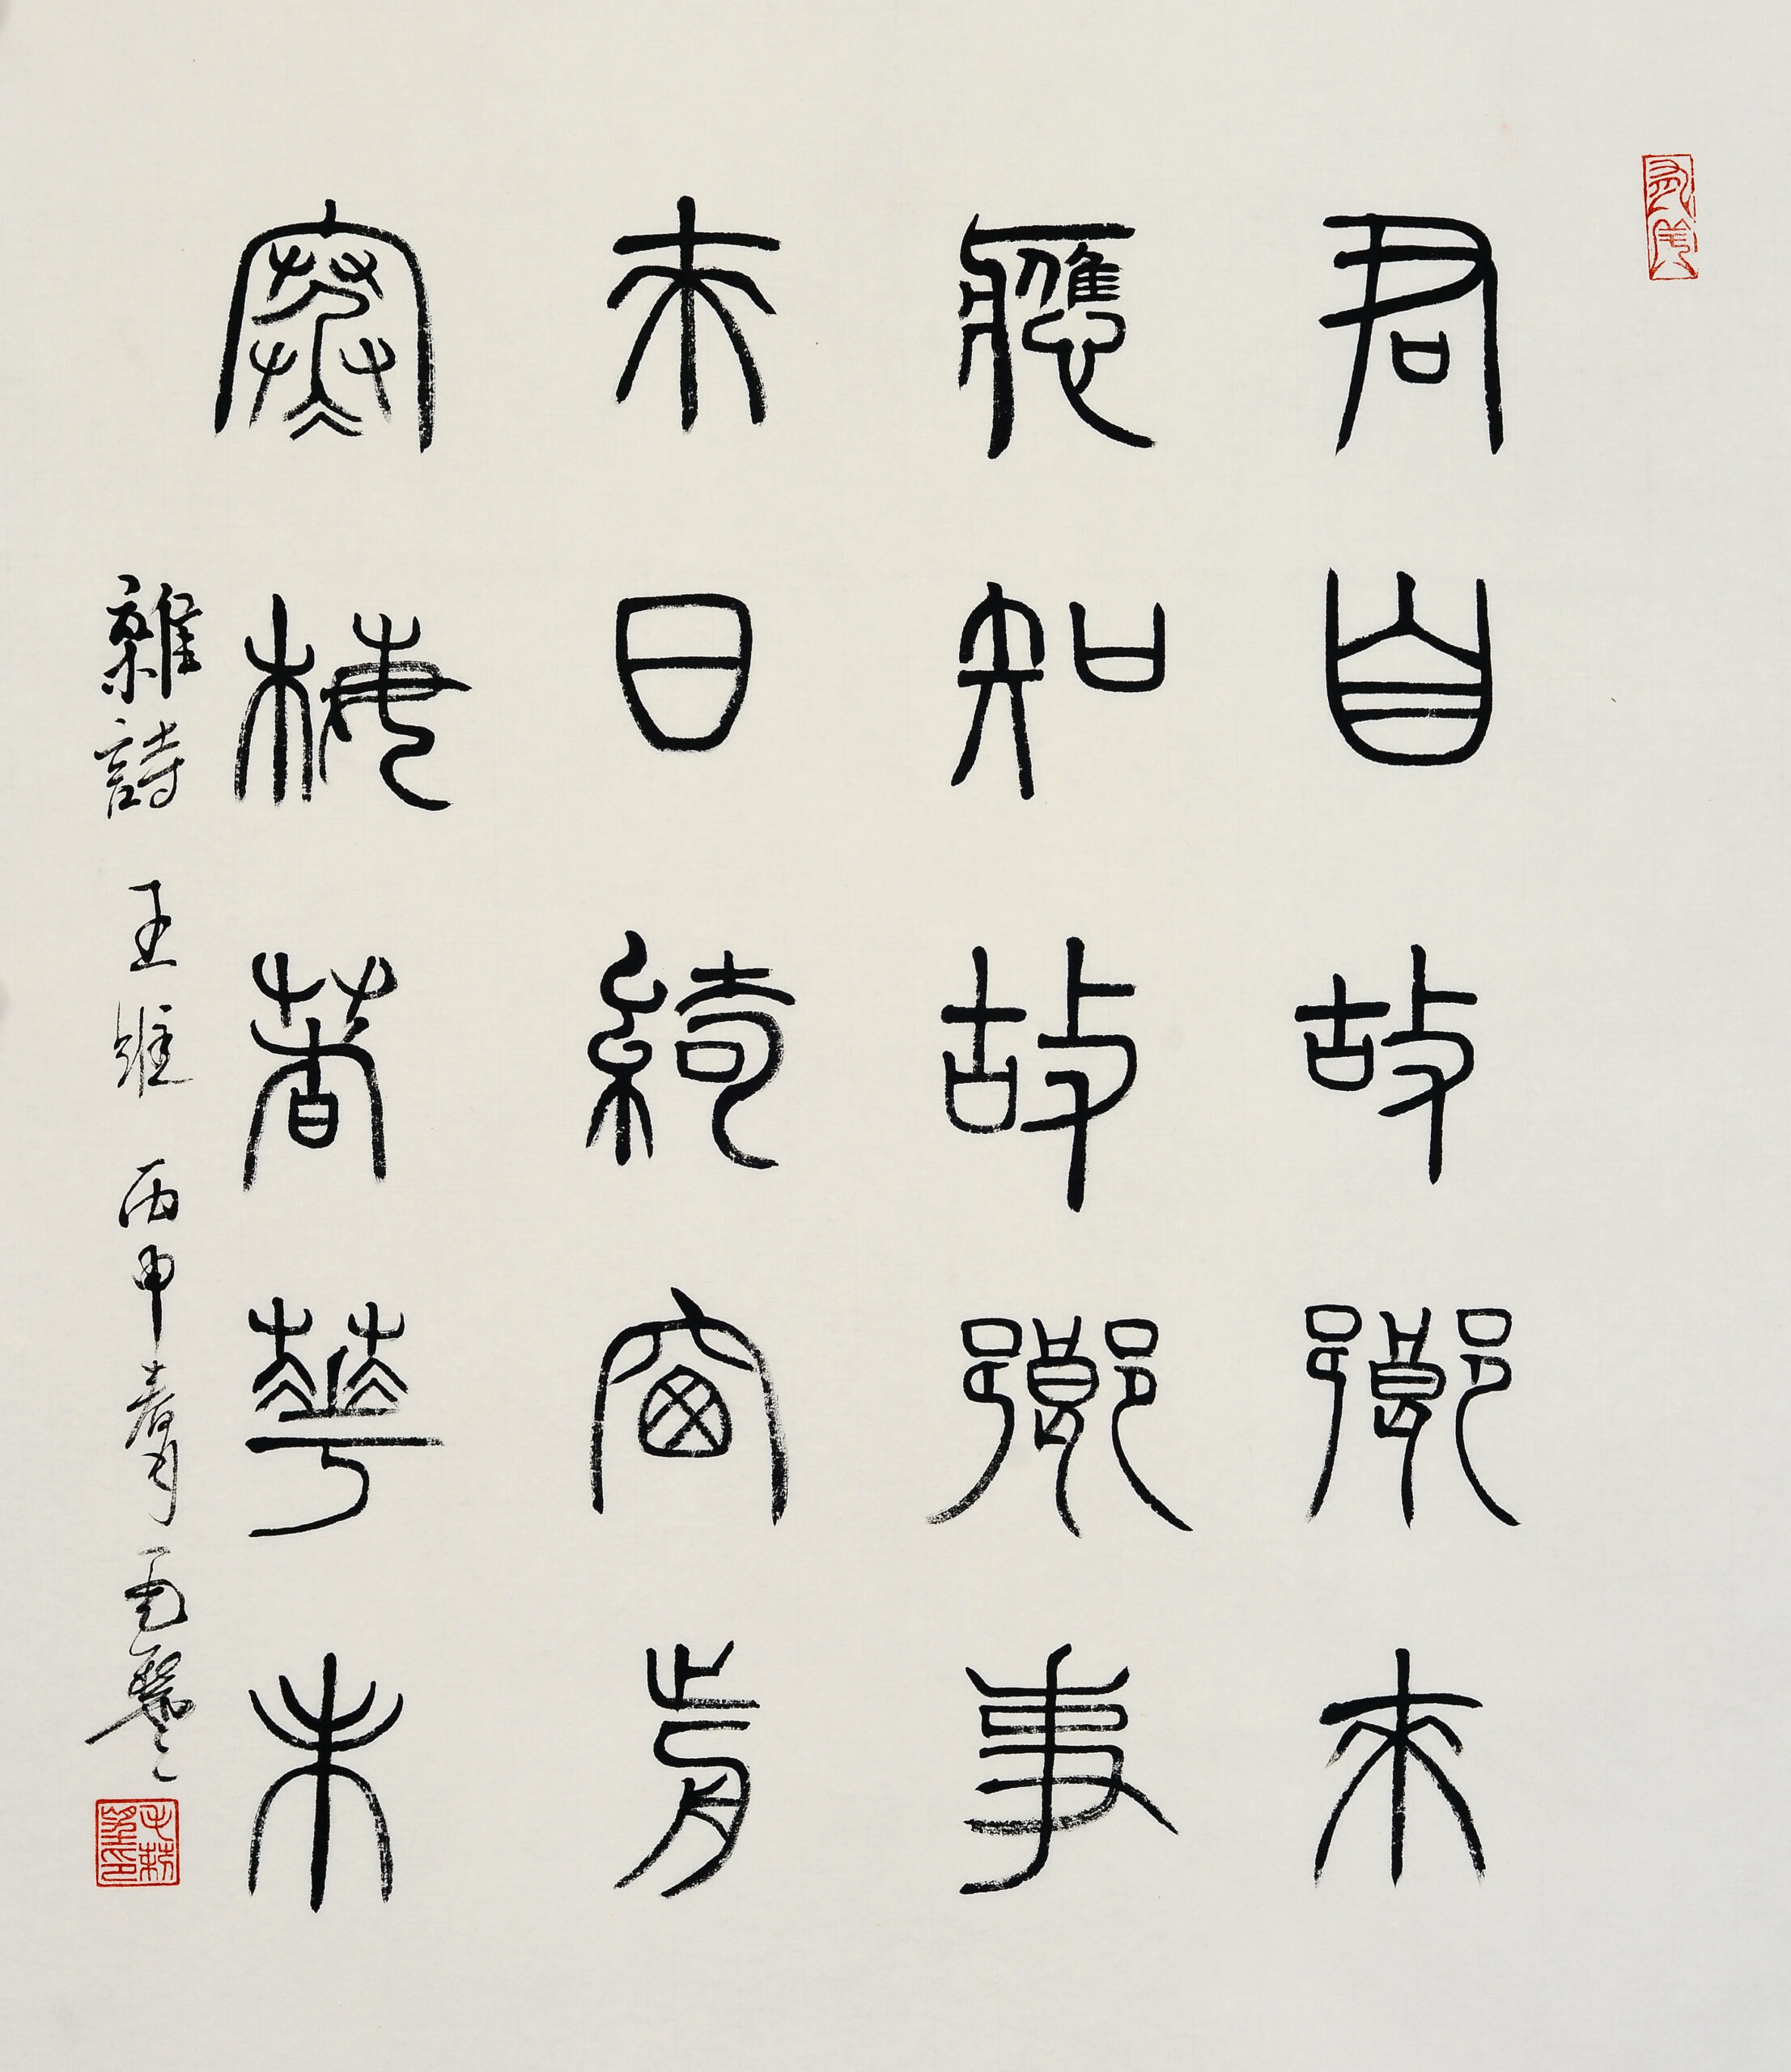 君自故鄉來
應知故鄉事
來日綺窗前
寒梅著華未
雜詩 王維 丙申春月